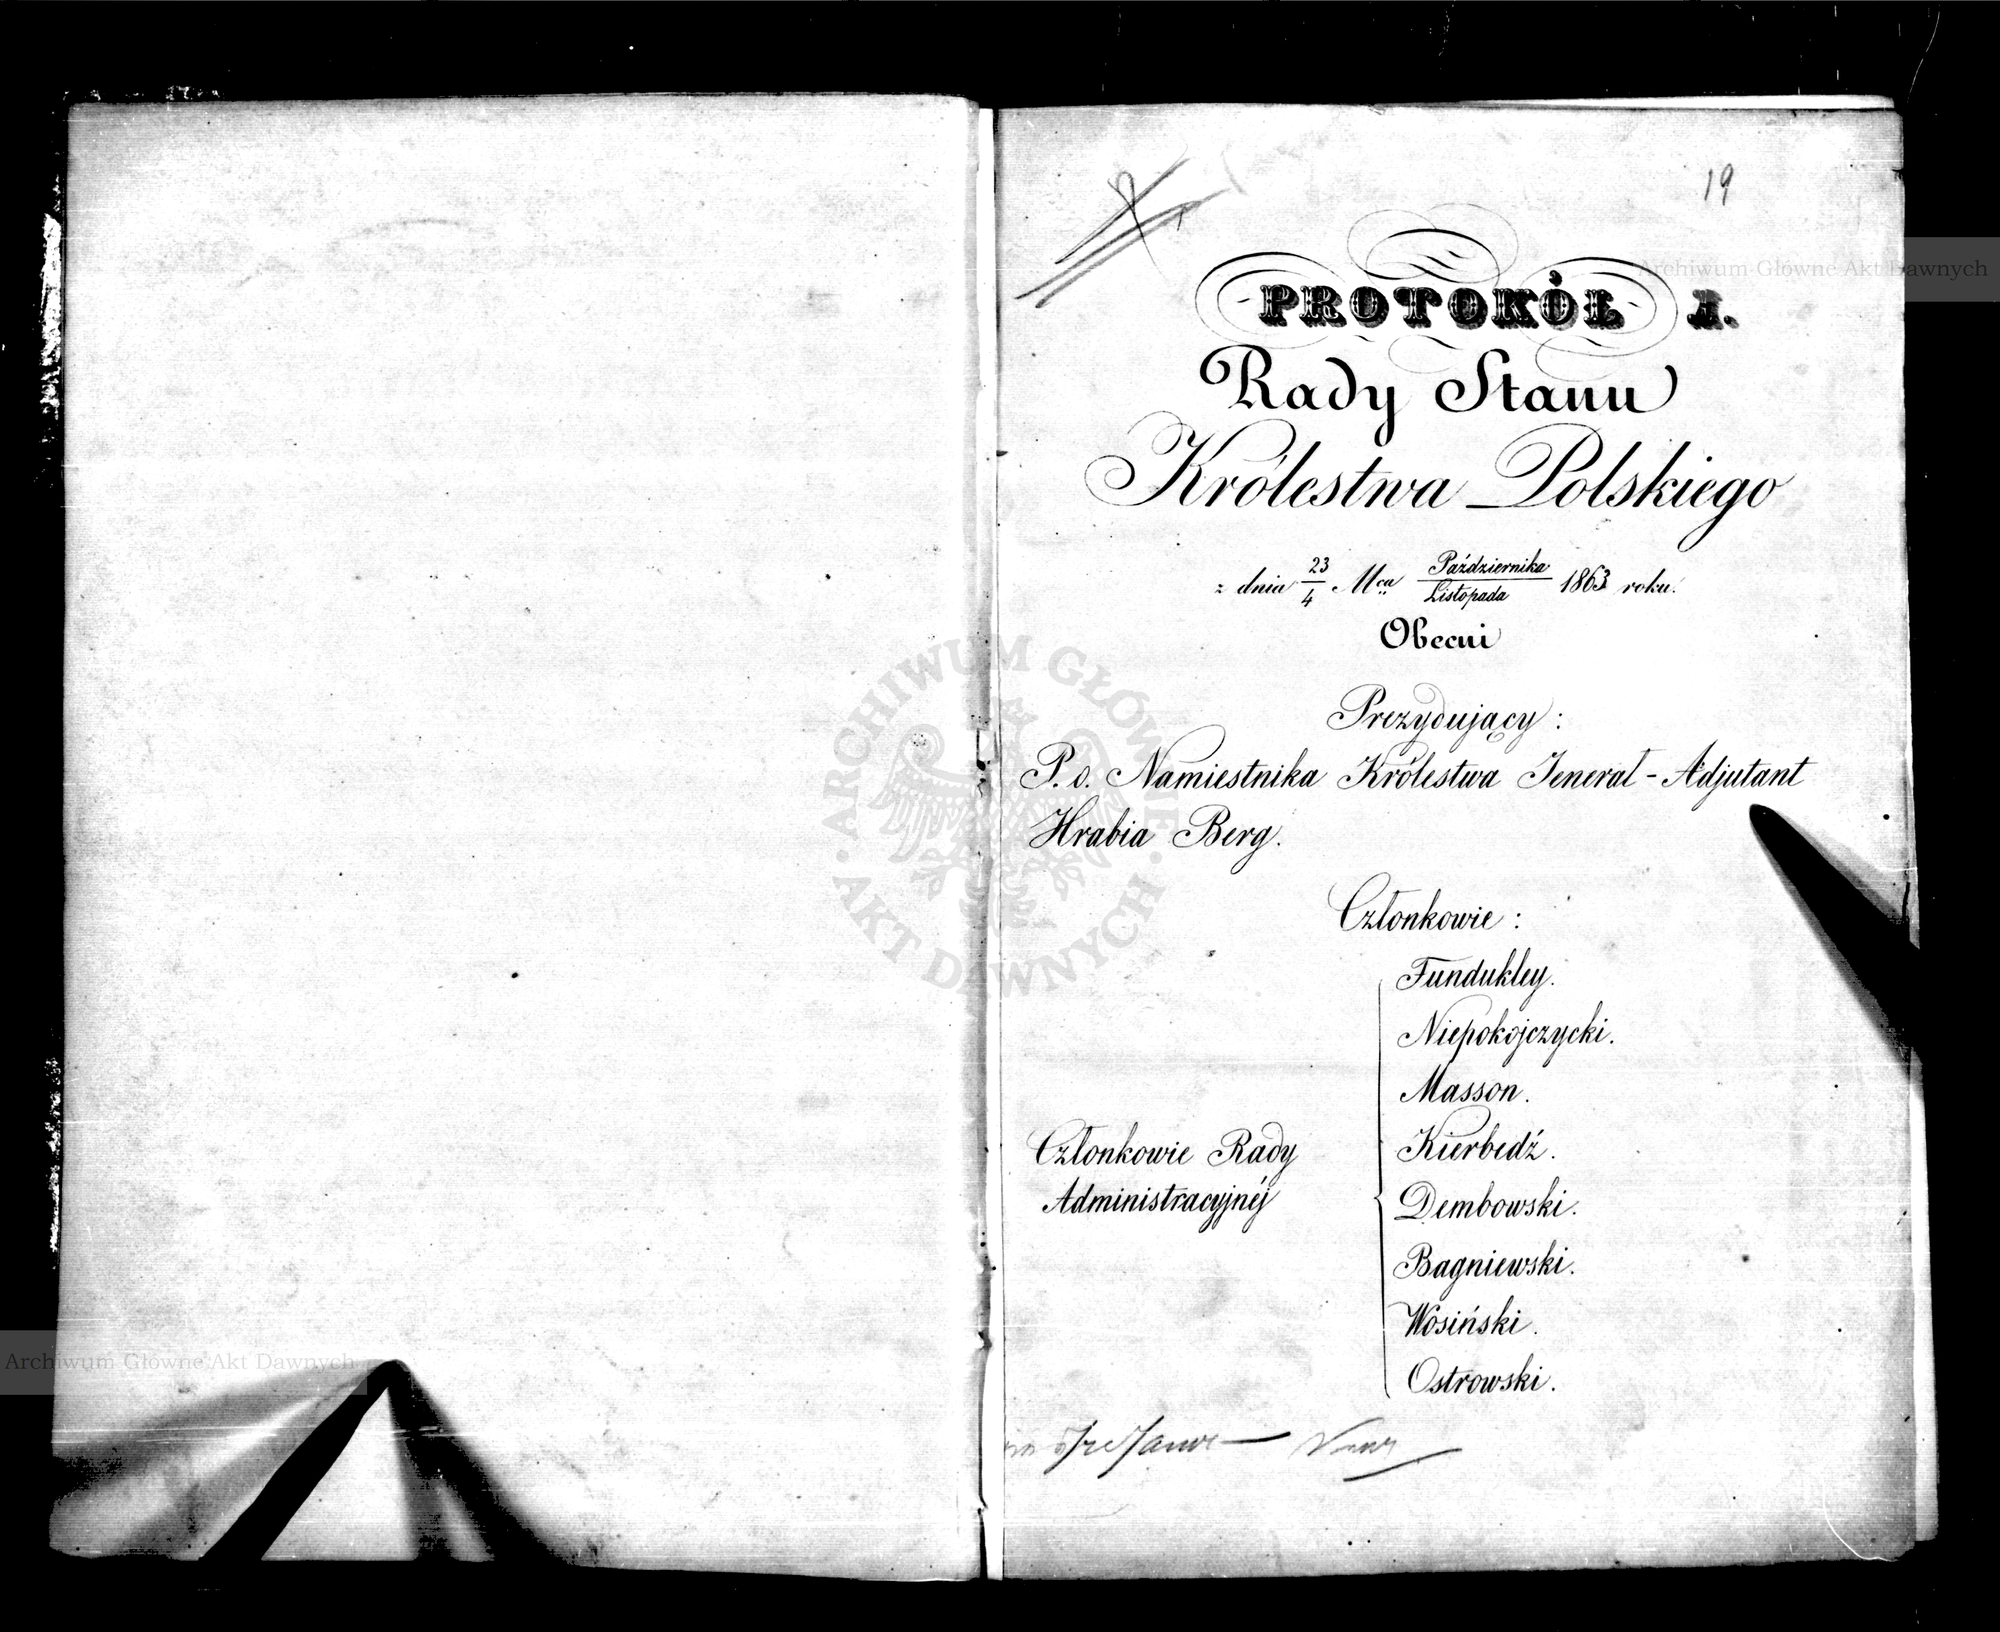 19
PROTOKÓŁ 1.
Rady Stanu
Królestwa Polskiego
z dnia 23/4 Mca Października/Listopada 1863 roku.
Obecni
Prezydujący:
P. o. Namiestnika Królestwa Jenerał-Adjutant
Hrabia Berg.
Członkowie:
Fundukley.
Niepokojczycki.
Masson.
Kierbedź.
Członkowie Rady
Administracyjnéj
Dembowski.
Bagniewski.
Wosiński.
Ostrowski.
Archiwum Główne Akt Dawnych
ARCHIWUM GŁÓWNE AKT DAWNYCH
Archiwum Główne Akt Dawnych